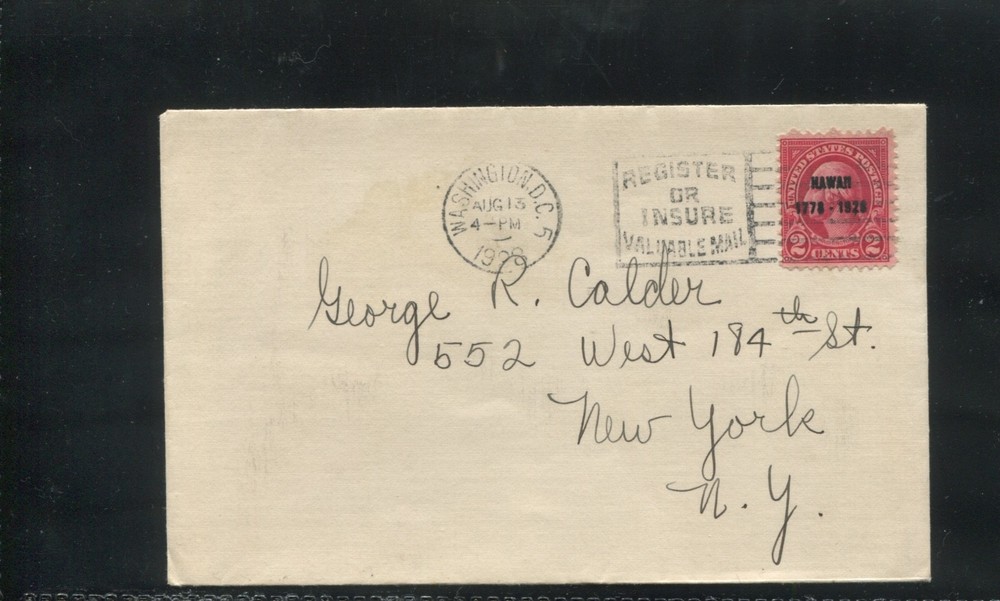 WASHINGTON, D.C. 5
AUG 13
4-PM
1928
REGISTER
OR
INSURE
VALUABLE MAIL
UNITED STATES POSTAGE
HAWAII
1778 - 1928
2 CENTS 2
George R. Calder
552 West 184th St.
New York
N. Y.